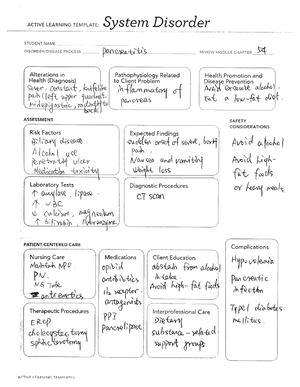 ACTIVE LEARNING TEMPLATE: System Disorder
STUDENT NAME
DISORDER/DISEASE PROCESS pancreatitis REVIEW MODULE CHAPTER 54
Alterations in
Health (Diagnosis)
Sever constant, knifelike
pain (left upper quadrant
midepigastric, radiating to
back)
Pathophysiology Related
to Client Problem
inflammatory of
pancreas
Health Promotion and
Disease Prevention
Avoid excessive alcohol.
Eat a low-fat diet.
ASSESSMENT
Risk Factors
Biliary disease
Alcohol use
Penetrating ulcer
Medication toxicity
Expected Findings
sudden onset of severe, boring
pain.
Nausea and vomiting
Weight loss
Laboratory Tests
↑ amylase, lipase
↑ WBC
↓ calcium, magnesium
↑ bilirubin,
Diagnostic Procedures
CT scan
SAFETY
CONSIDERATIONS
Avoid alcohol
Avoid high-
fat foods
or heavy meals
PATIENT-CENTERED CARE
Nursing Care
Maintain NPO
PN.
NG Tube
antiemetics
Medications
opioid
antibiotics
H2 receptor
antagonists
PPI
Pancrelipase
Client Education
abstain from alcohol
intake
Avoid high-fat foods
Therapeutic Procedures
ERCP
cholecystectomy
sphincterotomy
Interprofessional Care
Dietary
substance-related
support groups.
Complications
Hypovolemia
Pancreatic
infection
Type 1 diabetes
mellitus.
ACTIVE LEARNING TEMPLATES